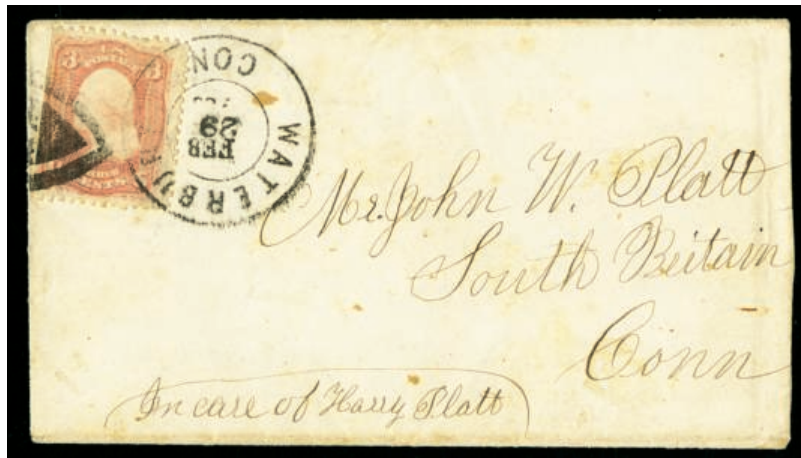 U.S. POSTAGE
3 3
CENTS
WATERBU
CON
FEB
29
Mr. John W. Platt
South Britain
Conn
In care of Harry Platt